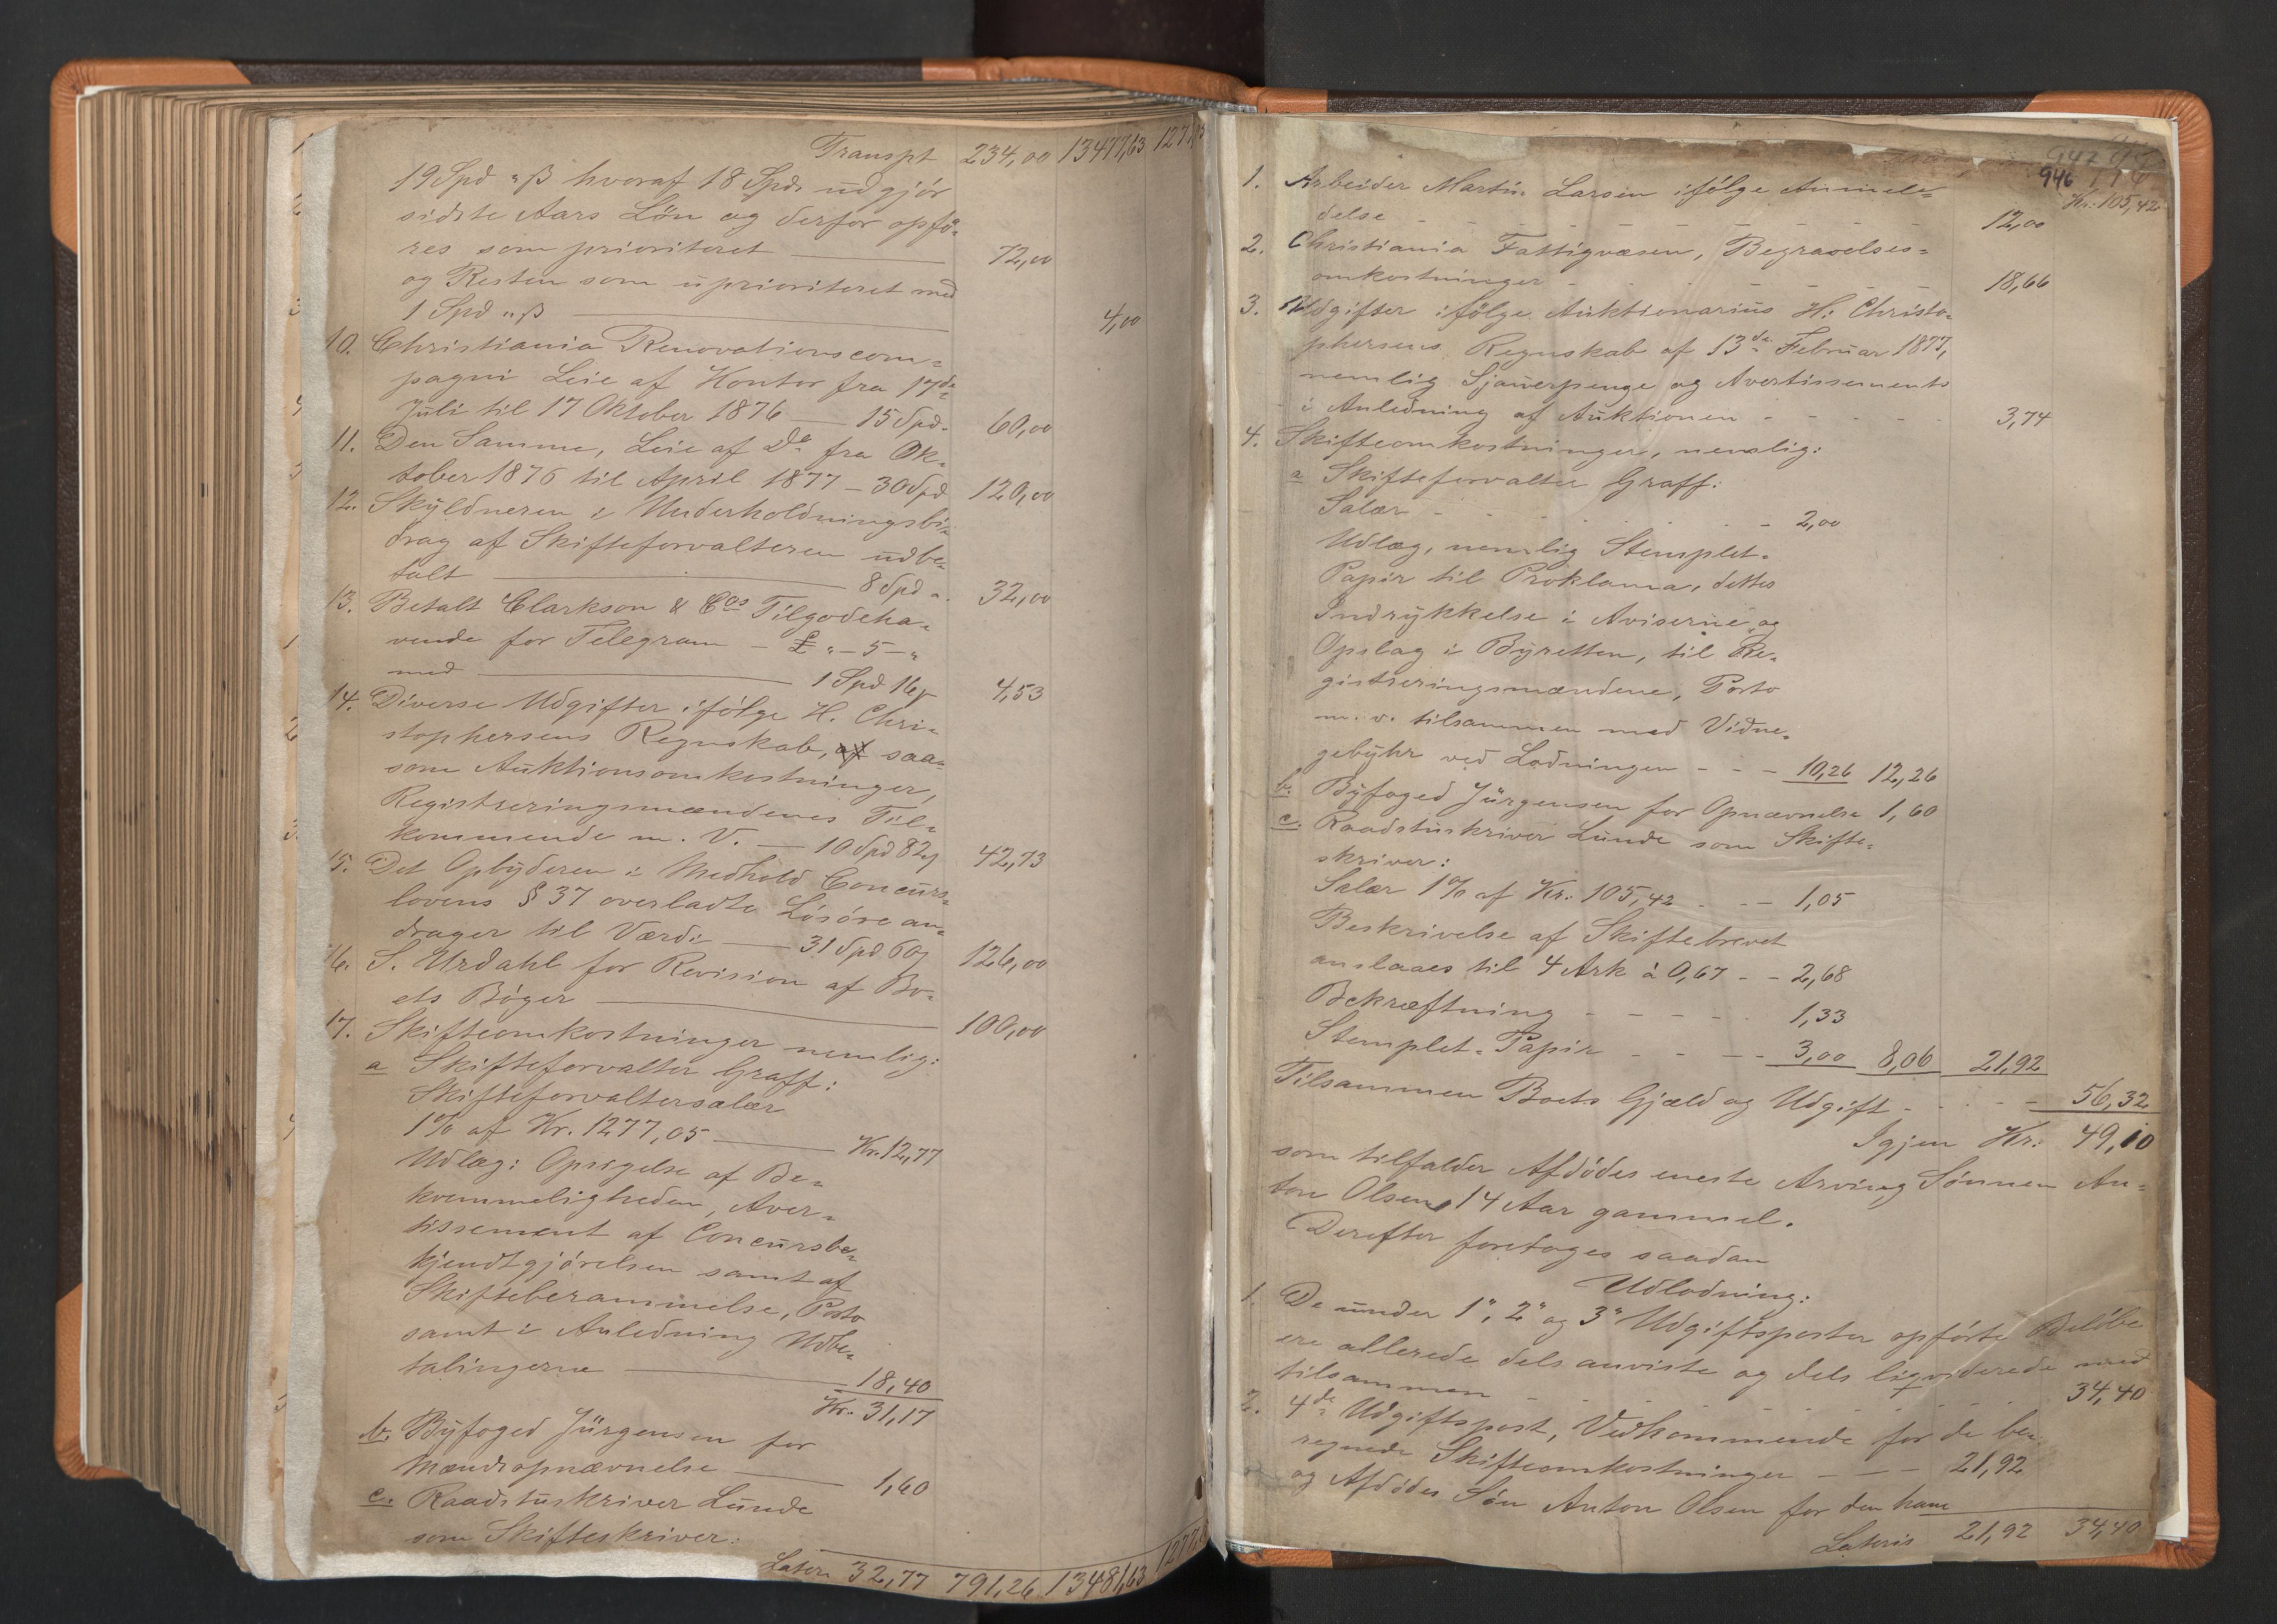 Transpt 234,00 13477,63 127
19 Spd "ß hvoraf 18 Spd. udgjör
sidste Aars Lön og derfor opfö-
res som prioriteret 72,00
og Resten som uprioriteret med
1 Spd "ß 4,00
10. Christiania Renovationscom-
pagni Leie af Kontor fra 17de
Juli til 17 Oktober 1876 15 Spd. 60,00
11. Den Samme, Leie af Do fra Ok-
tober 1876 til April 1877 - 30 Spd 120,00
12. Skyldneren i Underholdningsbi-
drag af Skifteforvalteren udbe-
talt 8 Spd ". 32,00
13. Betalt Clarkson & Cos Tilgodeha-
vende for Telegram - £ " - 5 - "
med 1 Spd 16ß 4,53
14. Diverse Udgifter ifölge H. Chri-
stophersens Regnskab, af saa-
som Auktionsomkostninger,
Registreringsmændenes Til-
kommende m. V. - 10 Spd 82ß 42,73
15. Det Opbyderen i Medhold Concurs-
lovens § 37 overladte Lösöre an-
drager til Værdi 31 Spd 60ß 126,00
16. S. Urdahl for Revision af Bo-
ets Böger 100,00
17. Skifteomkostninger nemlig:
a Skifteforvalter Graff:
Skifteforvaltersalær
1% af Kr. 1277,05 Kr. 12,77
Udlæg: Opsigelse af Be-
kvemmeligheden, Aver-
tissement af Concursbe-
kjendtgjörelsen samt af
Skifteberammelse, Porto
samt i Anledning Udbe-
talingerne 18,40
Kr. 31,17
b. Byfoged Jürgensen for
Mændsopnævnelse 1,60
c. Raadstuskriver Lunde
som Skifteskriver:
Lateris 32,77 791,26 13481,63 1277,
946
Kr. 105,42
1. Arbeider Martin Larsen ifölge Anmel-
delse 12,00
2. Christiania Fattigvæsen, Begravelses-
omkostninger 18,66
3. Udgifter ifölge Auktionarius H. Christo-
phersens Regnskab af 13de Februar 1877,
nemlig Sjauerpenge og Avertissements
i Anledning af Auktionen 3,74
4. Skifteomkostninger, nemlig:
a Skifteforvalter Graff:
Salær 2,00
Udlæg, nemlig Stemplet-
Papir til Proklama, dettes
Indrykkelse i Aviserne og
Opslag i Byretten, til Re-
gistreringsmændene, Porto
m. v. tilsammen med Vidne-
gebyhr ved Lodningen - - - 10,26 12,26
b. Byfoged Jürgensen for Opnævnelse 1,60
c. Raadstuskriver Lunde som Skifte-
skriver:
Salær 1% af Kr. 105,42 - - - 1,05
Beskrivelse af Skiftebrevet
anslaaes til 4 Ark à 0,67 - - 2,68
Bekræftning 1,33
Stemplet-Papir 3,00 8,06 21,92
Tilsammen Boets Gjæld og Udgift 56,32
Igjen Kr. 49,10
som tilfalder Afdödes eneste Arving Sönnen An-
ton Olsen, 14 Aar gammel.
Derefter foretages saadan
Udlodning:
1. De under 1", 2" og 3" Udgiftsposter opförte Belöbe
ere allerede dels anviste og dels liqviderede med
tilsammen 34,40
2. 4de Udgiftspost, Vedkommende for de be-
regnede Skifteomkostninger - - - 21,92
og Afdödes Sön Anton Olsen for den ham
Lateris 21,92 34,40